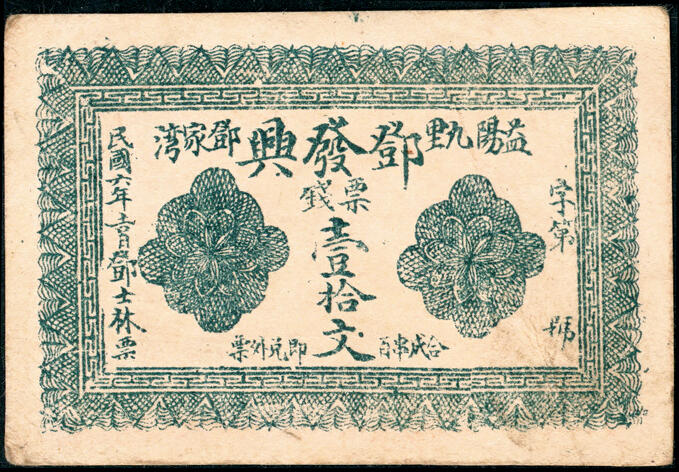 益陽九里
鄧發興
鄧家湾
票錢
壹拾文
字第 號
合成串百
即兑外票
民國六年吉日鄧士林票